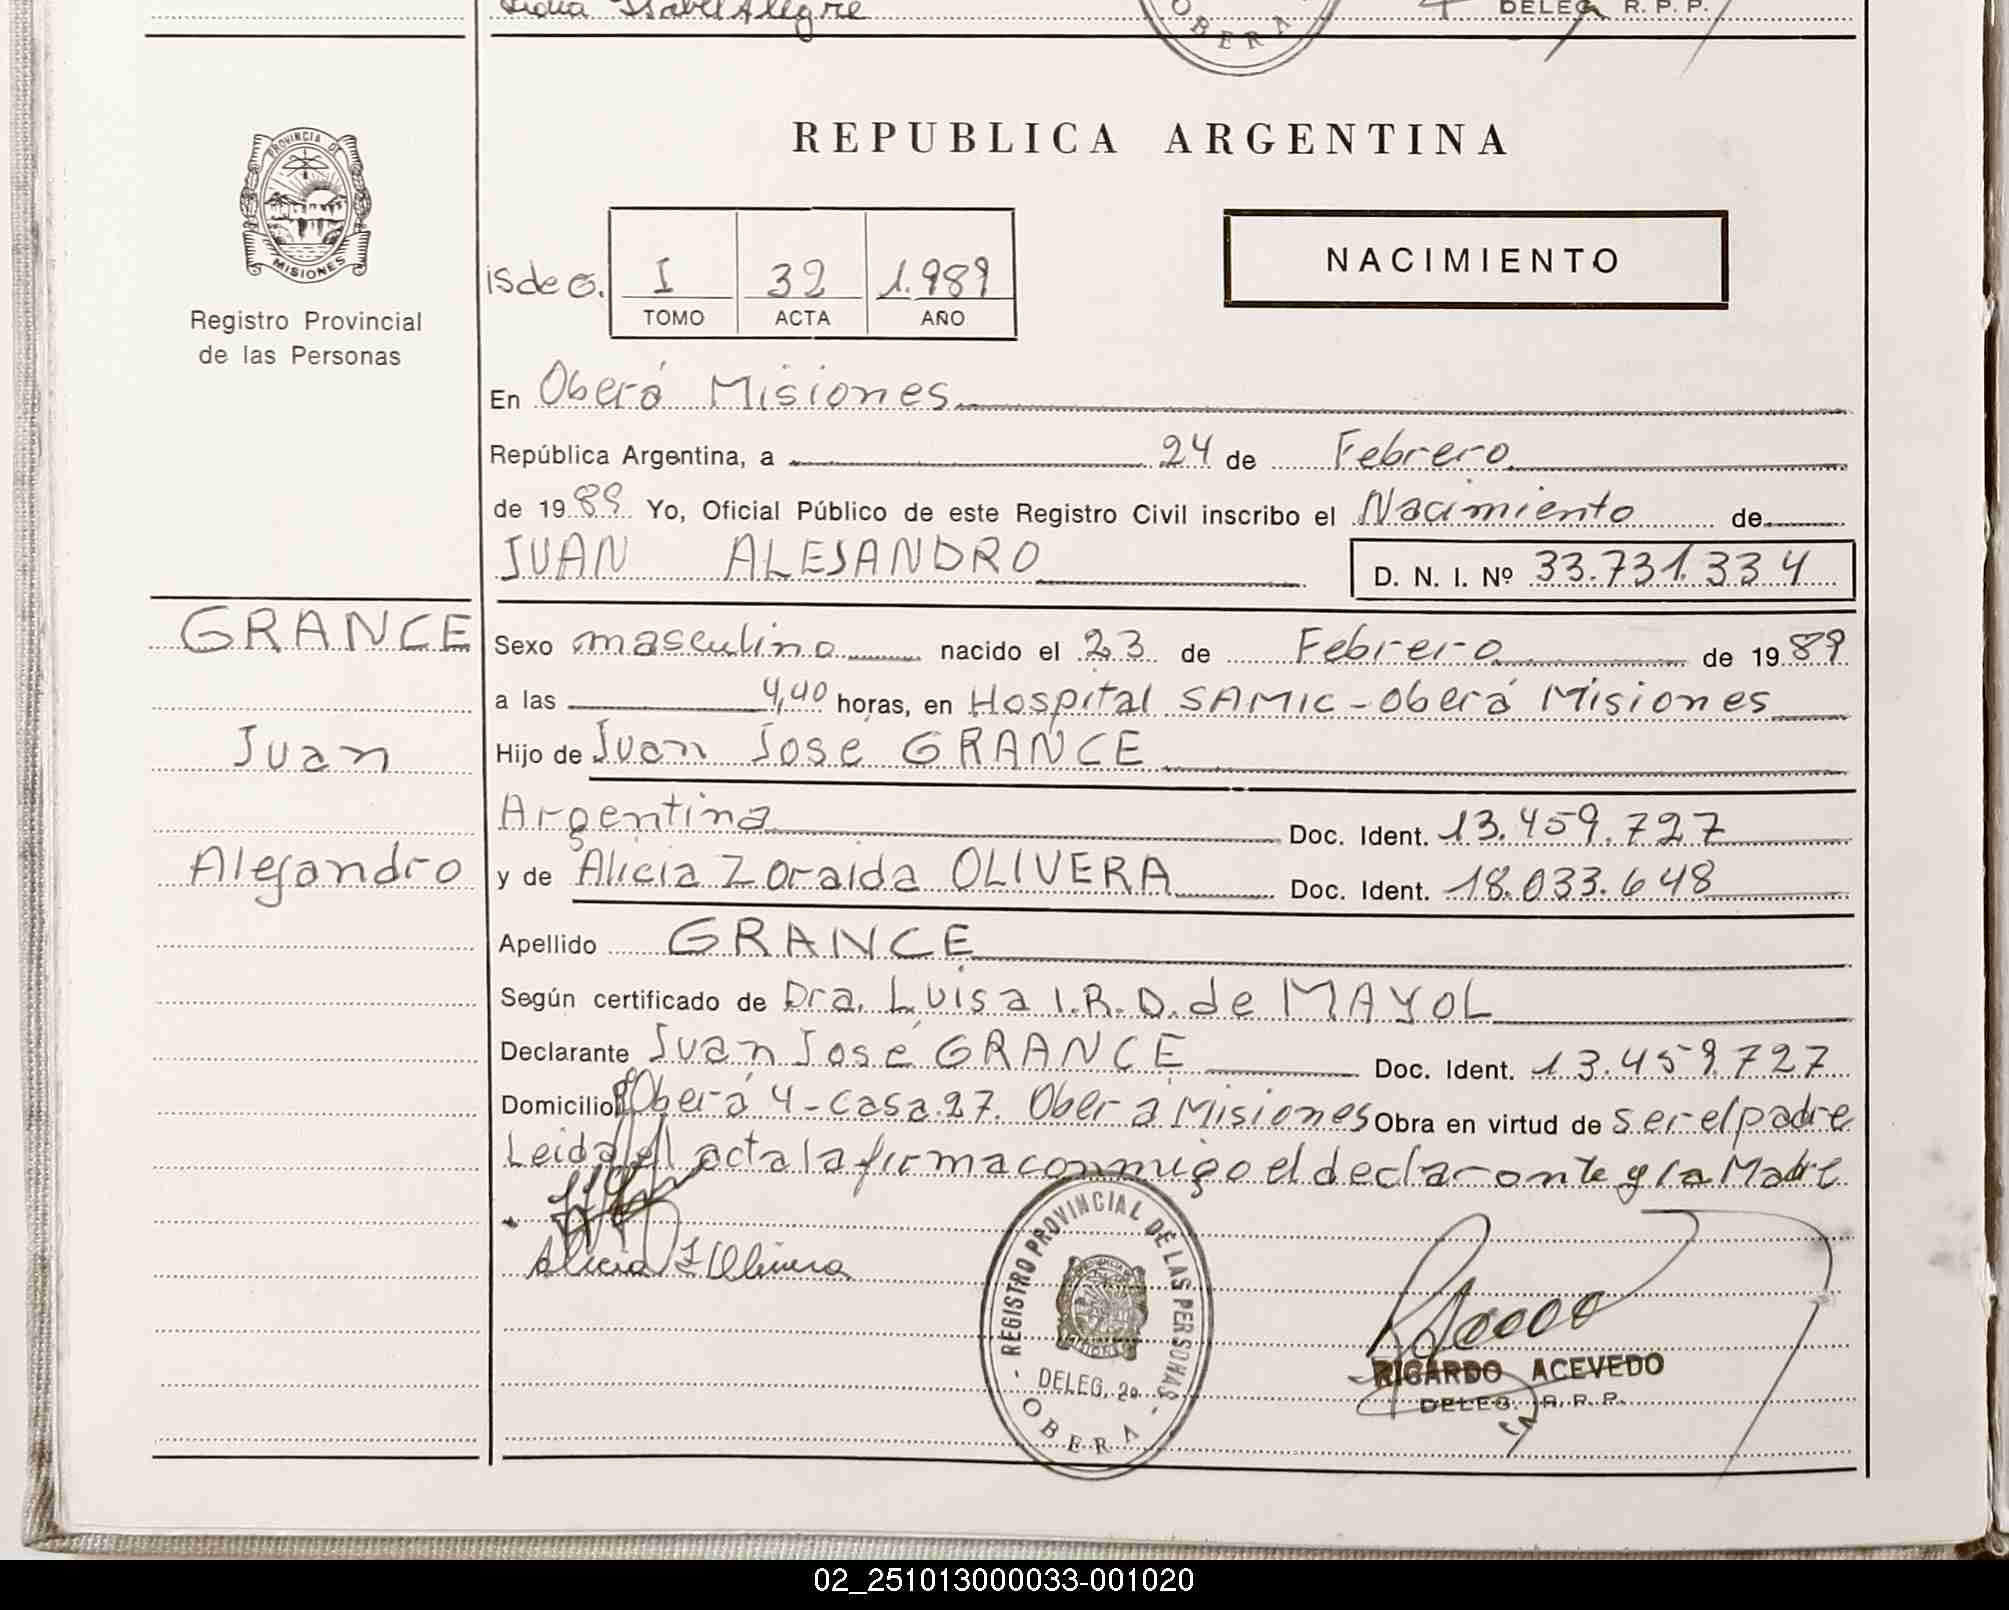 Isabel Alegre
DELEG. R. P. P.
OBERA
PROVINCIA DE
MISIONES
Registro Provincial
de las Personas
REPUBLICA ARGENTINA
NACIMIENTO
I 32 1.989
TOMO ACTA AÑO
En Oberá Misiones
República Argentina, a 24 de Febrero
de 1989 Yo, Oficial Público de este Registro Civil inscribo el Nacimiento de
JUAN ALEJANDRO D. N. I. Nº 33.731.334
GRANCE
Juan
Alejandro
Sexo masculino nacido el 23 de Febrero de 1989
a las 4,40 horas, en Hospital SAMIC - Oberá Misiones
Hijo de Juan Jose GRANCE
Argentina Doc. Ident. 13.459.727
y de Alicia Zoraida OLIVERA Doc. Ident. 18.033.648
Apellido GRANCE
Según certificado de Dra. Luisa I.R.D. de MAYOL
Declarante Juan José GRANCE Doc. Ident. 13.459.727
Domicilio Oberá 4 - casa 27. Oberá Misiones Obra en virtud de ser el padre
Leida el acta la firma conmigo el declarante y la Madre
Alicia Z Olivera
REGISTRO PROVINCIAL DE LAS PERSONAS
DELEG. 2a
- OBERA -
RICARDO ACEVEDO
DELEG. R. P. P.
02_251013000033-001020